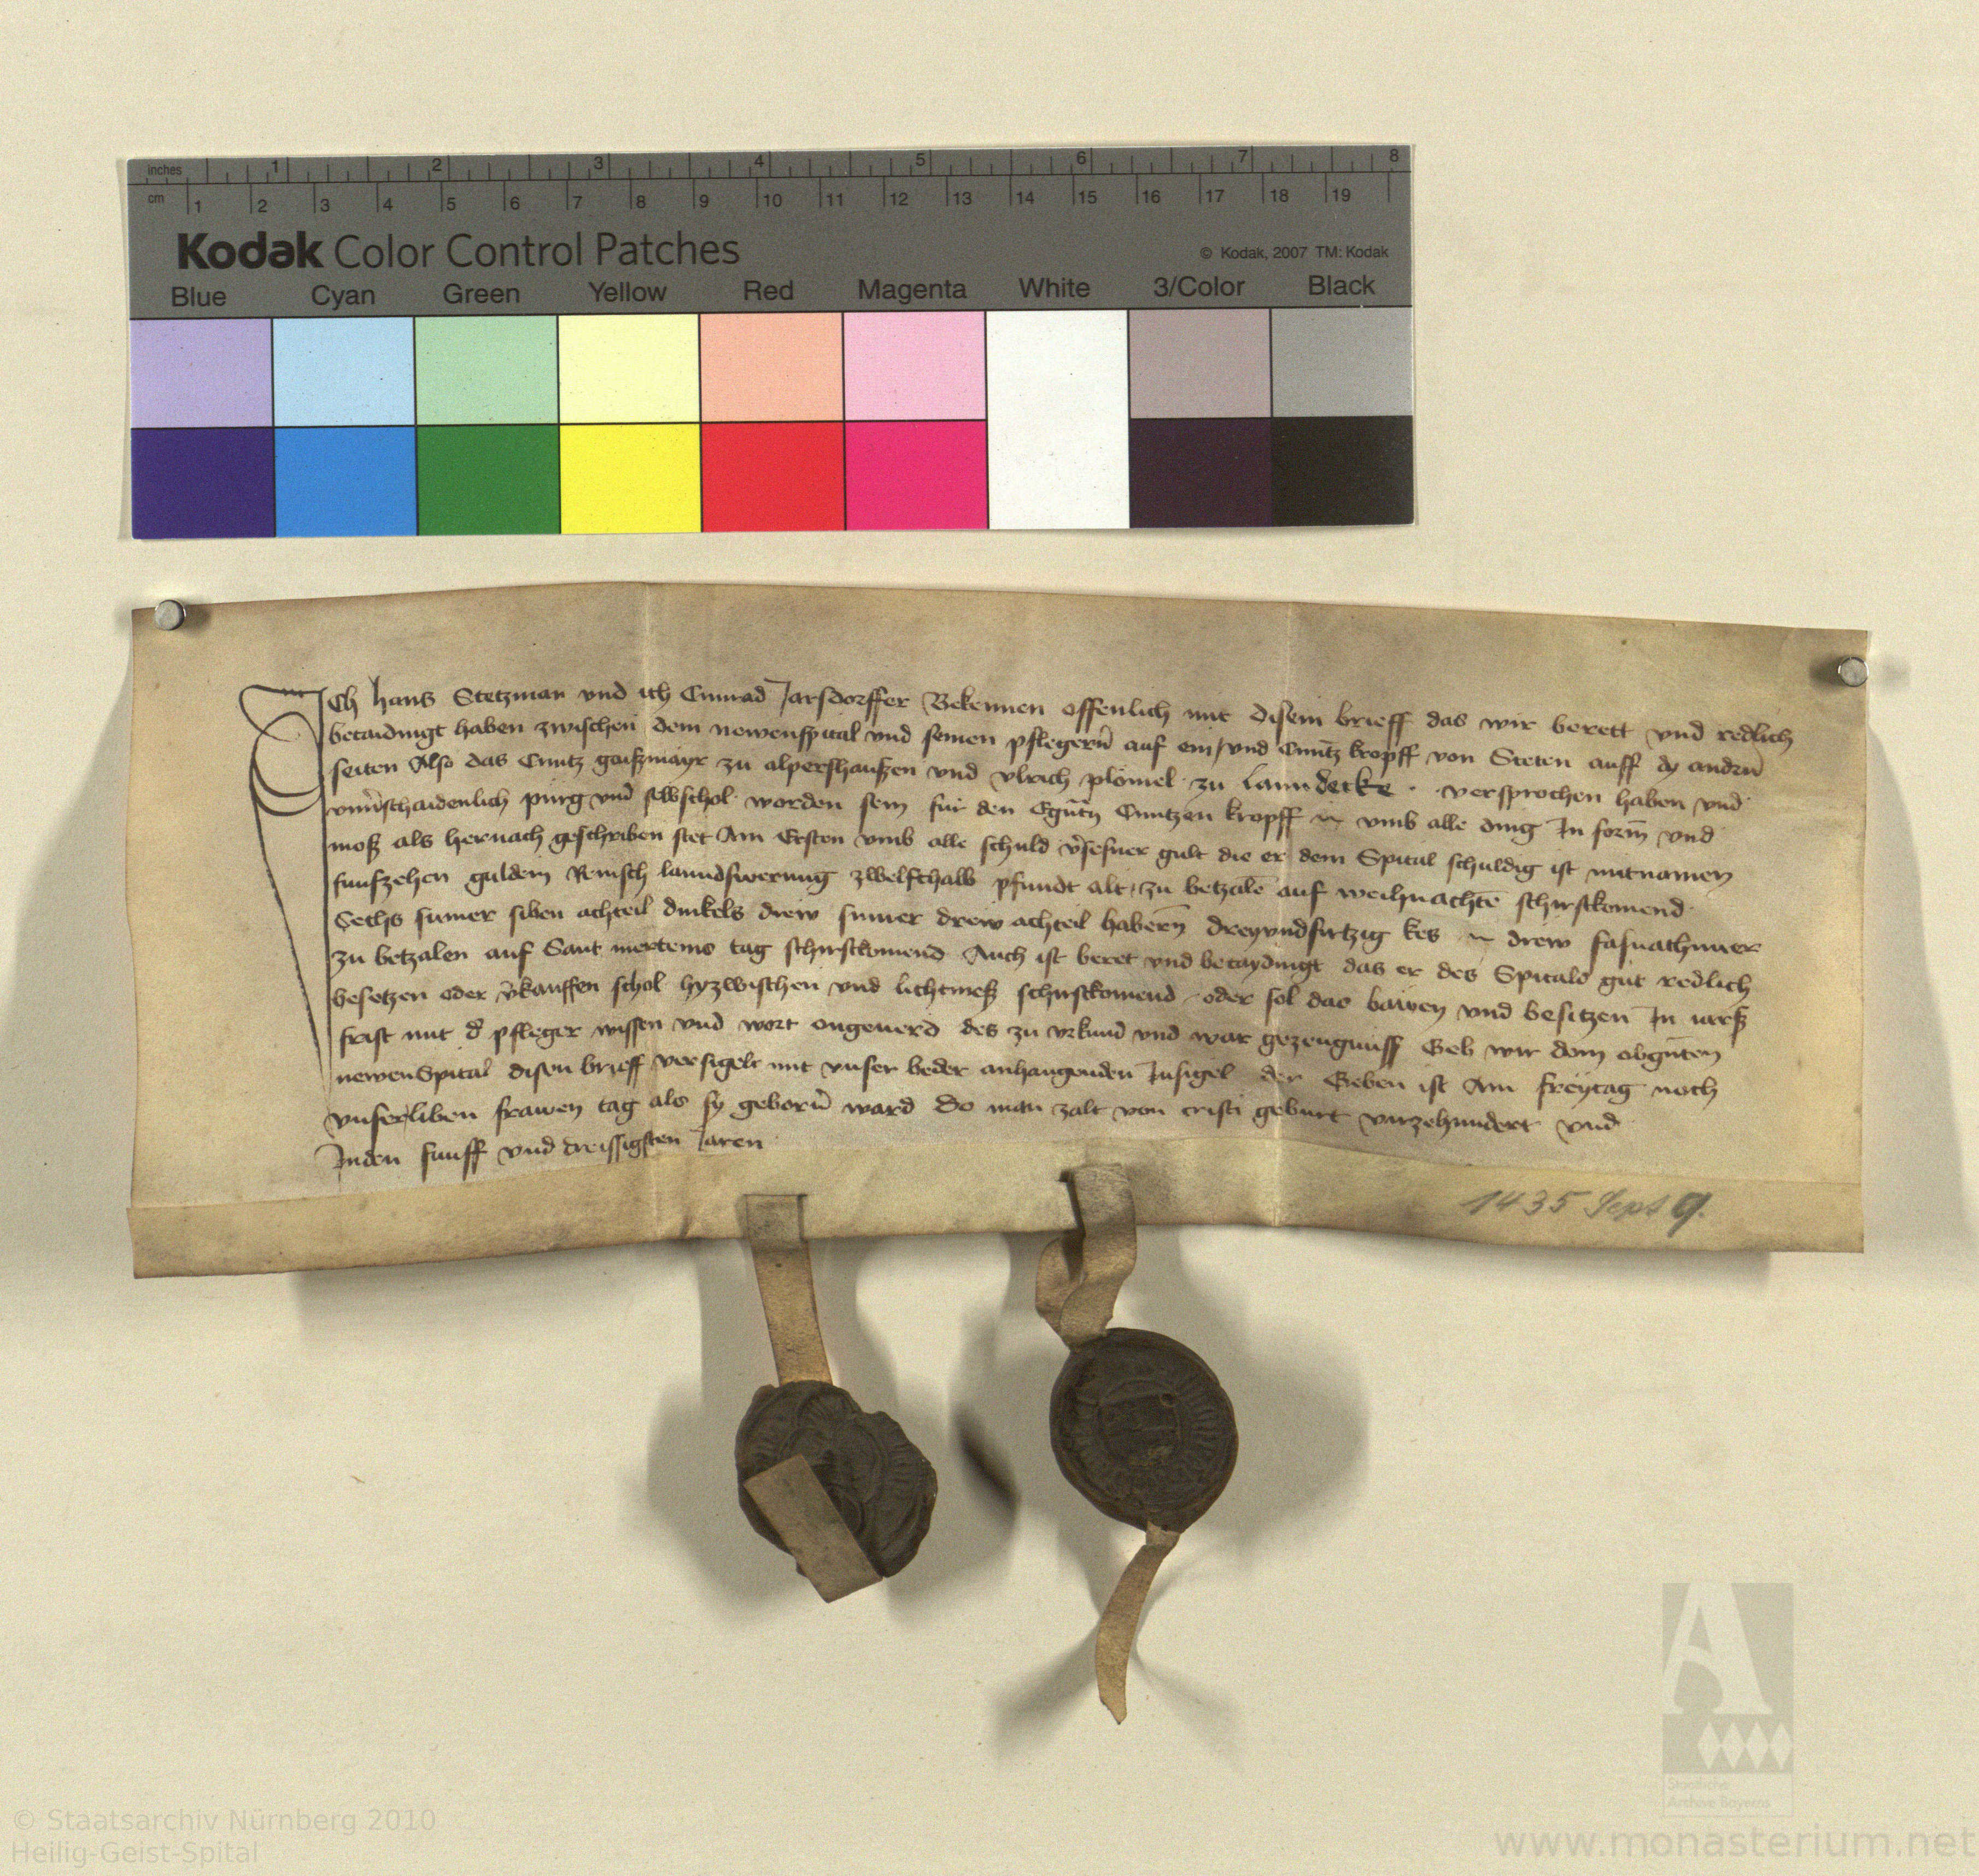 inches 1 2 3 4 5 6 7 8
cm 1 2 3 4 5 6 7 8 9 10 11 12 13 14 15 16 17 18 19
Kodak Color Control Patches
© Kodak, 2007 TM: Kodak
Blue Cyan Green Yellow Red Magenta White 3/Color Black
Ich hans Stetzman vnd ich Cunrad Jarsdorffer Bekennen offenlich mit disem brieff das wir berett vnd redlich
betaidingt haben zwischen dem newenspital vnd seinen pflegern̄ auf ein / vnd Cuntz kropff von Steten auff dy andrn̄
seiten Also das Cuntz gaißmayr zu alpershaußen vnd vlrich plömel zu lanndecke · versprochen haben vnd
vnuerschaidenlich pürg vnd selbschol worden sein für den Cuntzen kropff vmb alle ding In form̄ vnd
moß als hernach geschriben stet Am Ersten vmb alle schuld v̄sesner gült die er dem Spital schuldig ist mitnamen
funfzehen guldein Reinisch lanndswerung zwelfthalb pfundt alt / zu betzalē auf weihnachtē schirstkomend
Sechs sumer siben achteil dinkels drew sumer drew achteil habern̄ dreyvndfirtzig kes drew fasnathuner
zu betzalen auf Sant mertems tag schirstkomend Auch ist beret vnd betaydingt das er des Spitals güt redlich
besetzen oder v̄kauffen schol hyzwischen vnd lichtmeß schirstkomend oder sol das bawen vnd besitzen In iarß
frist mit d̄ pfleger wissen vnd wort ongeuerd des zu vrkund vnd war gezeugnuss Geb wir dem obgūten
newenSpital disen brieff versigelt mit vnser beder anhangenden Insigel der Geben ist Am freytag noch
vnserliben frawen tag als sy geborn̄ ward do man zalt von cristi geburt virzehundert vnd
Inden funff vnd dreissigsten Jaren
1435 Sept 9.
Staatliche
Archive Bayerns
© Staatsarchiv Nürnberg 2010
Heilig-Geist-Spital
www.monasterium.net